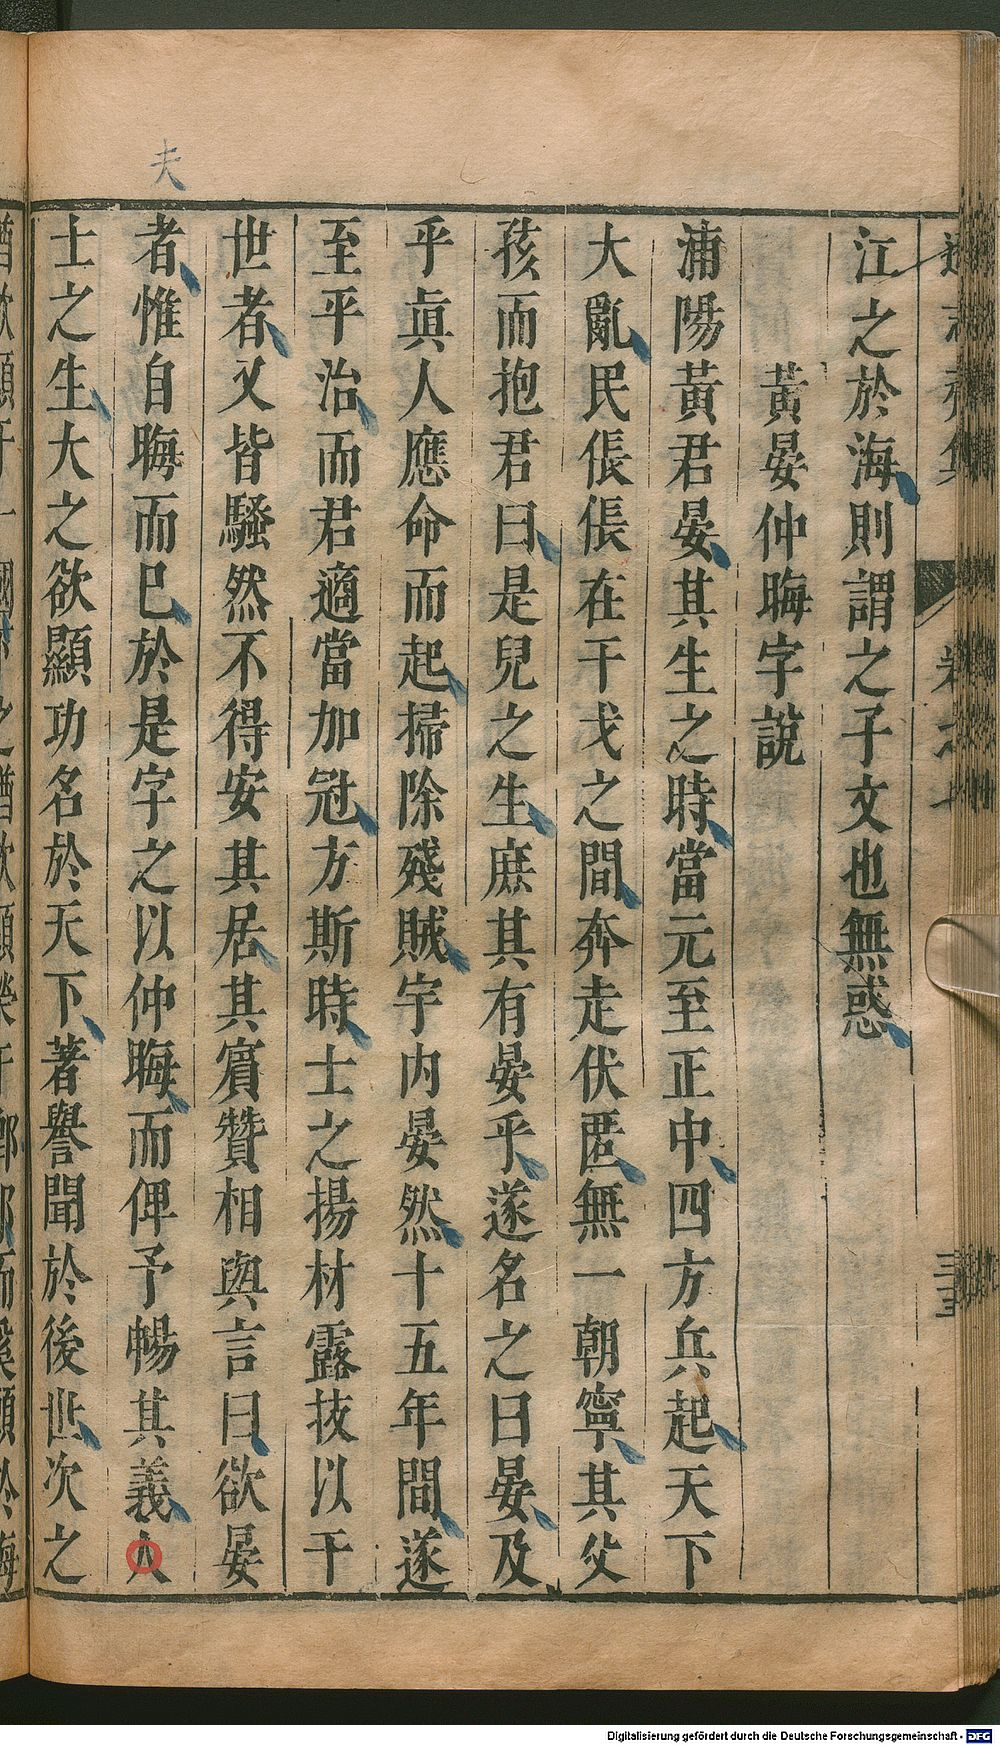 江之於海則謂之子文也無惑
黃晏仲晦字說
浦陽黃君晏其生之時當元至正中四方兵起天下
大亂民倀倀在干戈之間奔走伏匿無一朝寧其父
孩而抱君曰是兒之生庶其有晏乎遂名之曰晏及
乎眞人應命而起掃除殘賊宇内晏然十五年間遂
至平治而君適當加冠方斯時士之揚材露技以干
世者又皆騷然不得安其居其賓贊相與言曰欲晏
者惟自晦而已於是字之以仲晦而俾予暢其義
夫
士之生大之欲顯功名於天下著譽聞於後世次之
Digitalisierung gefördert durch die Deutsche Forschungsgemeinschaft - DFG